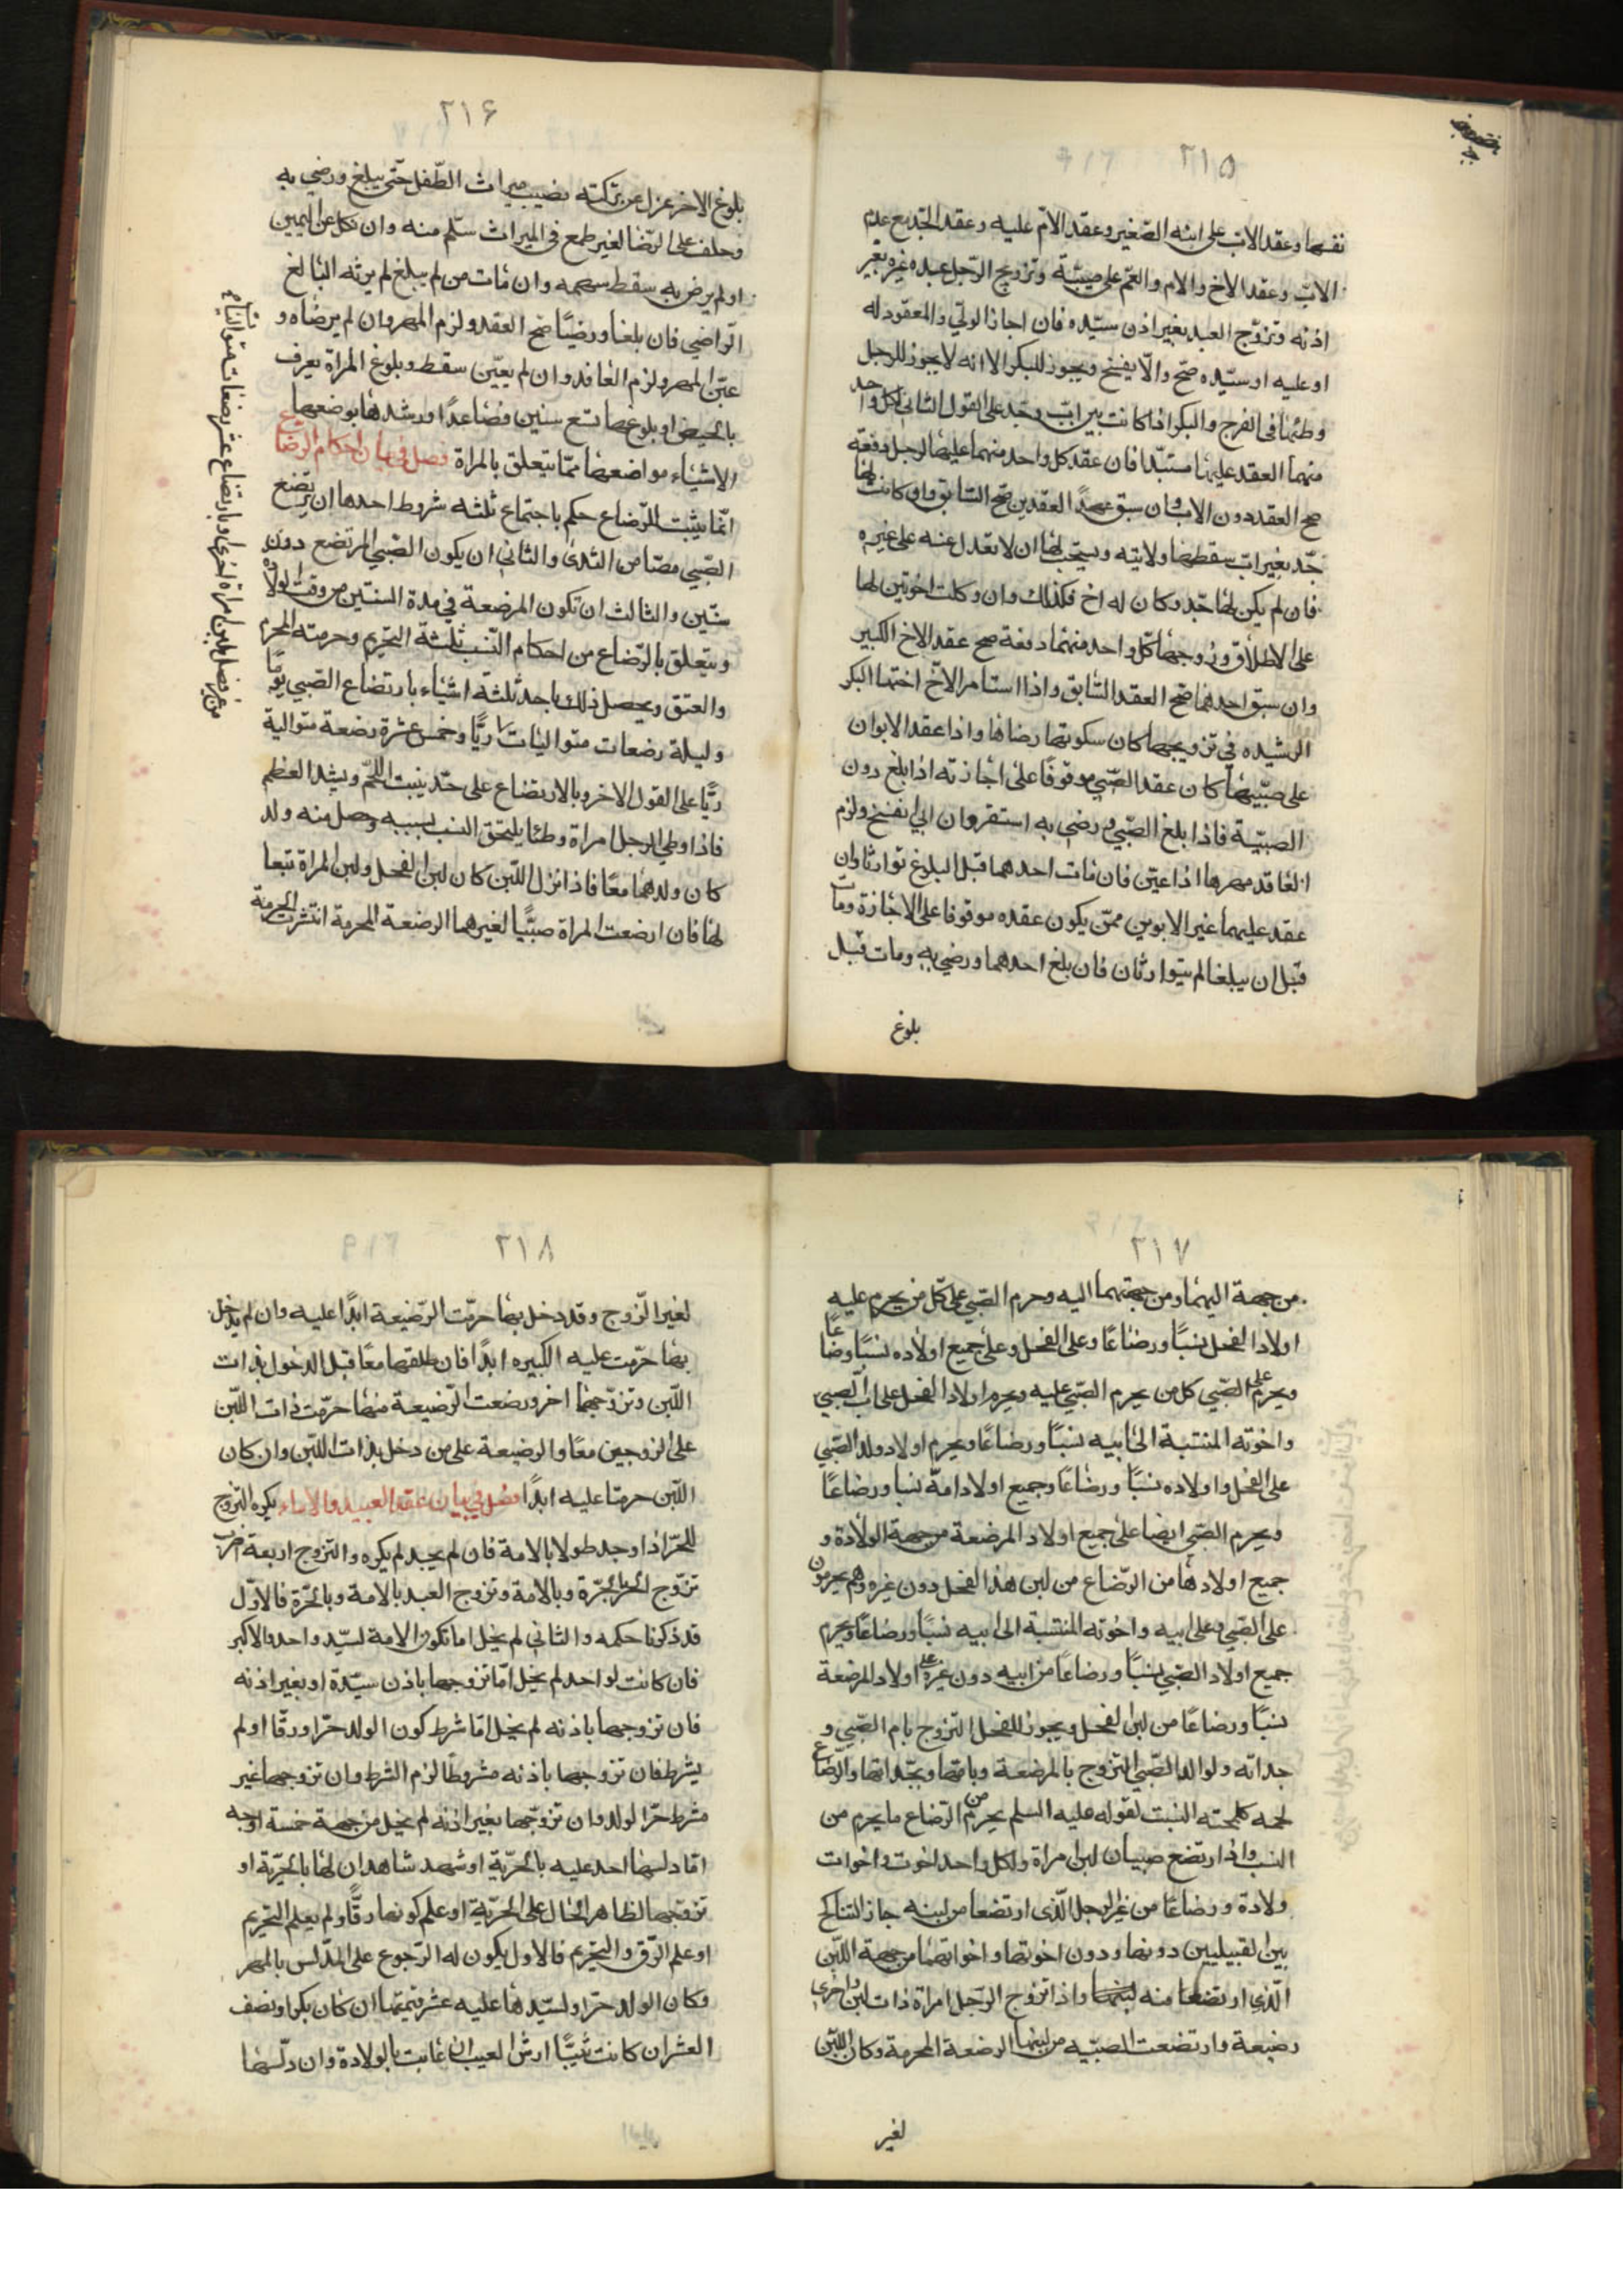 ٢١٥
نفسها وعقد الاب على ابنه الصّغير وعقد الامّ عليه وعقد الجدّ مع عدم
الابّ وعقد الاخ والام والعمّ على صبيّة وتزويج الرّجل عبده غيره بغير
اذنه وتزوّج العبد بغير اذن سيّده فان اجاز الولي والمعقود له
او عليه او سيّده صحّ والّا يفسخ ويجوز للبكر الا انه لا يجوز للرجل
وطئها فى الفرج والبكر اذا كانت بين ابّ وجد على القول الثانى لكل واحد
منهما العقد عليها مستبدّا فان عقد كل واحد منهما عليها لرجل دفعة
صح العقد دون الاب وان سبق احد العقدين صحّ السّابق وان كانت لها
جّد بغير اب سقط عنها ولايته ويستحب لها ان لا تعدل عنه على غيره
فان لم يكن لها جّد وكان له اخ فكذلك وان وكلت اخوتين لها
على الاطلاق وزوجها كلّ واحد منهما دفعة صح عقد الاخ الكبير
وان سبق احدهما صحّ العقد السّابق واذا استامر الاخّ اختها البكر
الرشيده في تزويجها كان سكوتها رضاها واذا عقد الابوان
على صبّيهما كان عقد الصّبي موقوفًا على اجازته اذا بلغ دون
الصبيّة فاذا بلغ الصّبي ورضي به استقر وان ابي انفسخ ولزم
العاقد مهرها اذا عيّن فان مات احدهما قبل البلوغ توارثا وان
عقد عليهما غير الابوين ممّن يكون عقده موقوفا على الاجازة ومات
قبل ان يبلغا لم يتوارثان فان بلغ احدهما ورضي به ومات قبل
بلوغ
٢١۶
بلوغ الاخر عزل عن تركته نصيب ميراث الطّفل حتّى يبلغ ورضي به
وحلف على الرّضا لغير طمع فى الميراث سلّم منه وان نكل عن اليمين
او لم يرض به سقط سهمه وان مات من لم يبلغ لم يرثه البالغ
الرّاضي فان بلغا ورضيًا صحّ العقد ولزم المهر وان لم يرضاه و
عيّن المهر ولزم العاقد وان لم يعيّن سقط وبلوغ المراة يعرف
بالحيض او بلوغها تسع سنين فصاعدًا ورشدها بوضعها
الاشياء مواضعها ممّا يتعلق بالمراة فصل في بيان احكام الرضاع
انّما يثبت للرّضاع حكم باجتماع ثلثه شروط احدها ان يرتضع
الصّبي مصّا من الثدى والثاني ان يكون الصّبي المرتضع دون
سنّين والثالث ان تكون المرضعة في مدة السنتين من وقت الولادة
ويتعلق بالرّضاع من احكام النّسب ثلثة التحريم وحرمته المحرم
والعتق ويحصل ذلك باحد ثلثة اشياء بارتضاع الصّبي يومًا
وليلة رضعات متواليات ريًّا وخمس عشرة رضعة متوالية
ريًّا على القول الاخر وبالارتضاع على حدّ ينبت اللحّم ويشد العظم
فاذا وطي الرجل امراة وطئا يلتحق النسب بسببه وحصل منه ولد
كان ولدهما معًا فاذا نزل اللّبن كان لبن الفحل ولبن المراة تبعا
لها فان ارضعت المراة صبّيًا لغيرهما الرضعة المحرمة انتشرت الحرمة
من غير فصل بلبن امراة اخرى او بارتضاع عشر رضعات متواليات تام
٢١٧
من جهة اليهما ومن جهتهما اليه وحرم الصّبي على كلّ من يحرم عليه
اولاد الفحل نسبًا ورضاعًا وعلى الفحل وعلى جميع اولاده نسبًا ورضاعًا
ويحرم على الصّبي كل من يحرم الصّبي عليه ويحرم اولاد الفحل على اب الصبي
واخوته المنتسبة الى ابيه نسبًا ورضاعًا ويحرم اولاد ولد الصّبي
على الفحل واولاده نسبًا ورضاعًا وجميع اولاد امّه نسبا ورضاعًا
ويحرم الصّبي ايضا على جميع اولاد المرضعة من جهة الولادة و
جميع اولادها من الرّضاع من لبن هذا الفحل دون غيره وهم يحرمون
على الصّبي وعلى ابيه واخوته المنتسبة الى ابيه نسبًا ورضاعًا ويحرم
جميع اولاد الصّبي نسبًا ورضاعًا من ابيه دون غيره على اولاد المرضعة
نسبًا ورضاعًا من لبن الفحل ويجوز للفحل التزوج بام الصّبي و
جداته ولوالد الصّبي التزوج بالمرضعة وبامّها وبجّداتها والرّضاع
لحمه كلحمته النسب لقوله عليه السلم يحرم من الرّضاع ما يحرم من
النسب واذا ارتضع صبيان لبن امراة ولكل واحد اخوت واخوات
ولادة ورضاعًا من غير الرجل الّذى ارتضعا من لبنه جاز التناكح
بين القبيليين دونها ودون اخوتها واخواتهما من جهة اللّبن
الّذى ارتضعا منه لبنهما واذا تزوج الرّجل امراة ذات لبن واخرى
رضيعة وارتضعت الصبيّه من لبنها الرضعة المحرمة وكان اللبّن
لغير
٢١٨
لغير الزّوج وقد دخل بها حرمّت الرّضيعة ابدًا عليه وان لم يدخل
بها حرّمت عليه الكبيره ابدًا فان طلقها معًا قبل الدخول بذات
اللّبن وتزوّجها اخر ورضعت الرّضيعة منها حرّمت ذات اللّبن
على الزوجين معًا والرضيعة على من دخل بذات اللبّن وان كان
اللّبن حرمتا عليه ابدًا فصل في بيان عقد العبيد والاماء يكره التزوج
للحرّ اذا وجد طولا بالامة فان لم يجد لم يكره والتزوج اربعة اضرب
تزوّج الحرّ بالحرّة وبالامة وتزوج العبد بالامة وبالحرّة فالاوّل
قد ذكرنا حكمه والثاني لم يخل اما تكون الامة لسيّد واحد والاكبر
فان كانت لواحد لم يخل امّا تزوجها باذن سيّدة او بغير اذنه
فان تزوجها باذنه لم يخل امّا شرط كون الولد حرّا ورقّا او لم
يشرط فان تزوجها باذنه مشروطًا لزم الشرط وان تزوجها غير
مشرط حرّا لولد وان تزوّجها بغير اذنه لم يخل من جهة خمسة اوجه
امّا دلسها احد عليه بالحرّية او شهد شاهدان لها بالحرّية او
تزوجها لظاهر الحال على الحرّية او علم كونها رقًّا ولم يعلم التحريم
او علم الرّق والتحريم فالاول يكون له الرّجوع على المدّلس بالمهر
وكان الولد حرّا ولسيّدها عليه عشر قيمتها ان كان بكرا ونصف
العشر ان كانت ثيبًّا ارش العيب ان غابت بالولادة وان دلّسها